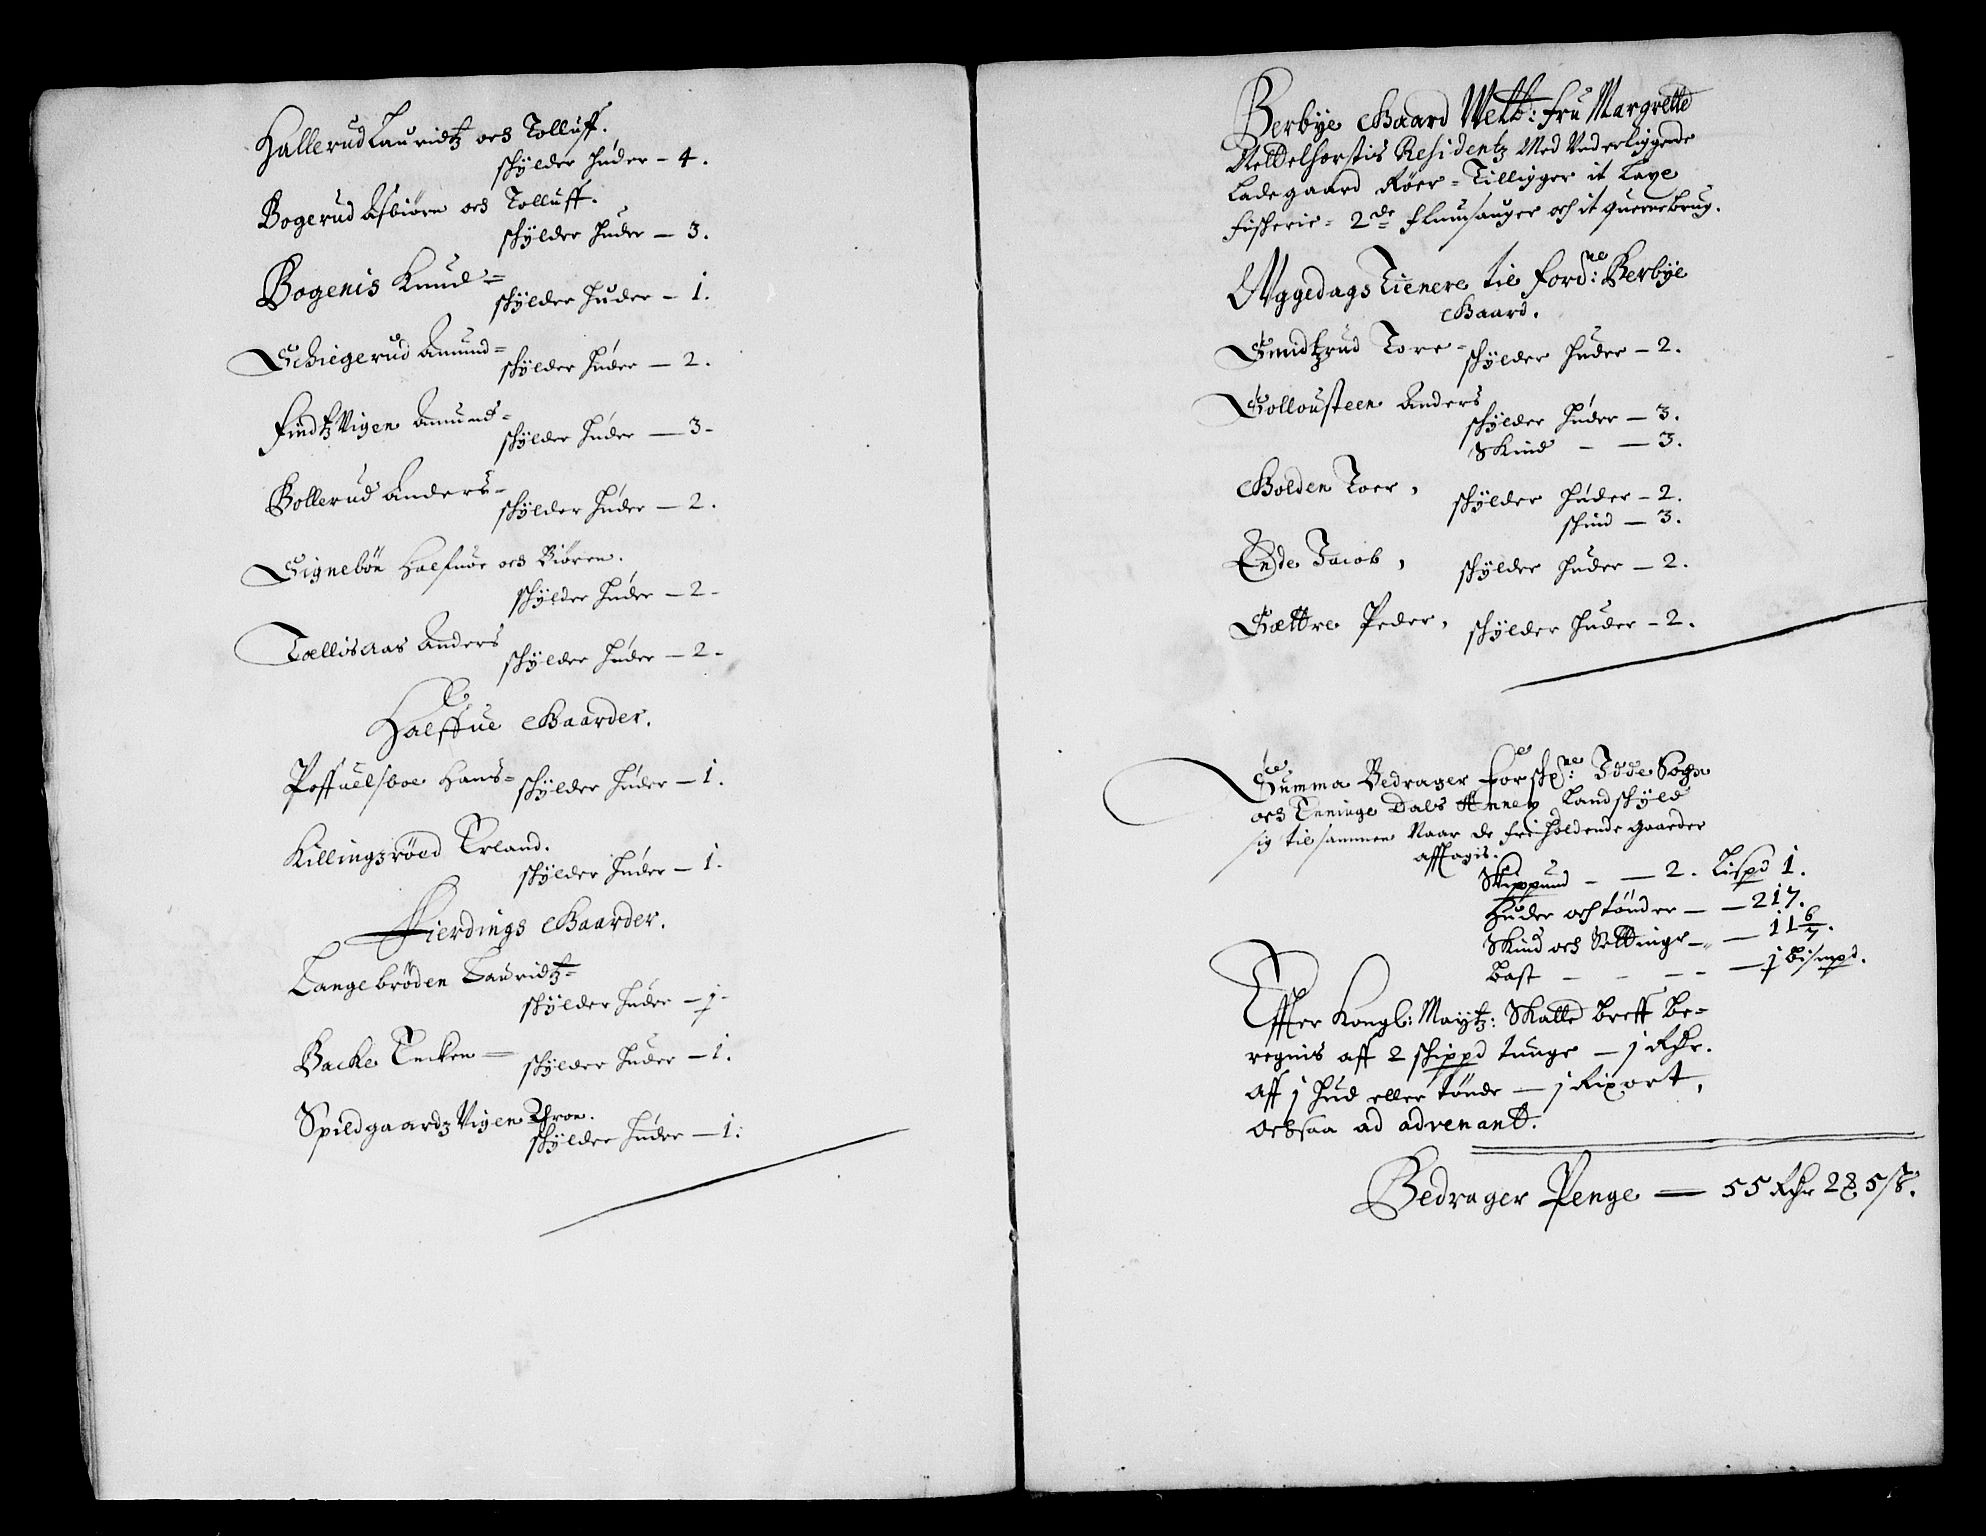 Hallerud Lauridtz och Tolluff.
schÿlder Huder — 4.
Bogerud Asbiörn och Tolluff.
schÿlder Huder — 3.
Bogenis Knud =
schÿlder Huder — 1.
Schiegerud Amund =
schÿlder Huder — 2.
Findtz Vigen Amund =
schÿlder Huder — 3 -
Bollerud Anders -
schÿlder Huder — 2.
Signebön Halfuor och Biören.
schÿlder Huder — 2 -
Tællisaas Anders
schÿlder Huder — 2 -
Halffue Gaarder.
Poffuelsboe Hans = schÿlder Huder — 1.
Killingsröed Erland.
schÿlder Huder — 1.
Fierdings Gaarder.
Langebröden Lauridtz =
schÿlder Huder — j -
Backe Encken — schÿlder Huder — 1.
Spildgaardz Vigen Thron.
schÿlder Huder — 1.
Berbÿe Gaard Welb: Fru Margrette
Nettelhorstis Residentz Med Vnderliggende
Ladegaard Röer = Tilligger it Laxe
fischerie = 2 de flumsauger och it quernebrug.
Uggedags Tienere til ford: ne Berbÿe
Gaard.
Smidtzrud Tore - schÿlder Huder — 2.
Gollousteen Anders
schÿlder Huder — 3.
Skind - — 3.
Holden Toer, schÿlder Huder — 2.
schind — 3.
Ende Jacob, schÿlder Huder — 2.
Sættre Peder, schÿlder Huder — 2.
Summa Bedrager forsch: ne Idde Sogn
och Enninge Dals Annex Landschÿld
sig tilsammen Naar de friholdende gaarder
afftagis.
Skippund - — 2. Lispd 1.
Huder och tönder — — 217.
Skind och Settinge — — 11 6/7.
Bast - - - - — j Bismpd.
Effter Kongl: Maÿtz: Skatte breff be=
regnis aff 2 schippd tunge — j Rdr.
aff j Hud eller tönde — j Rixort,
och saa ad advenant.
Bedrager Penge — 55 Rdr 2 ₰ 5 ß.